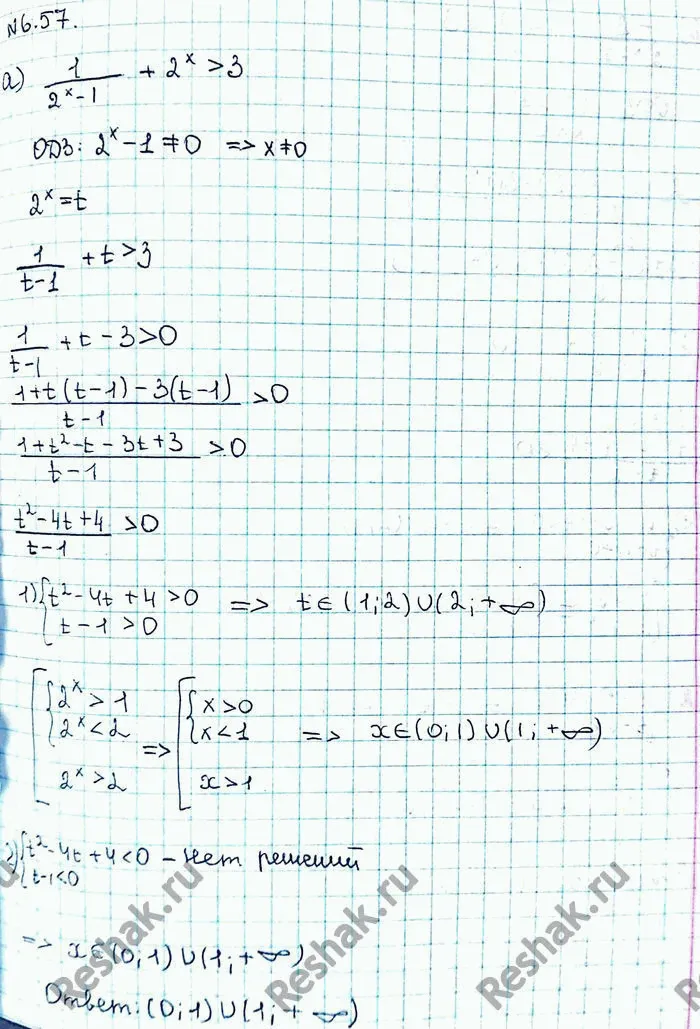 №6.57.
а) 1/(2^x-1) + 2^x > 3
ОДЗ: 2^x - 1 ≠ 0 => x ≠ 0
2^x = t
1/(t-1) + t > 3
1/(t-1) + t - 3 > 0
(1+t(t-1)-3(t-1))/(t-1) > 0
(1+t²-t-3t+3)/(t-1) > 0
(t²-4t+4)/(t-1) > 0
1) { t²-4t+4 > 0 => t∈(1;2)∪(2;+∞)
t-1 > 0
[ { 2^x > 1 => [ { x > 0 => x∈(0;1)∪(1;+∞)
2^x < 2 x < 1
2^x > 2 x > 1
2) { t²-4t+4 < 0 - нет решений
t-1 < 0
=> x∈(0;1)∪(1;+∞)
Ответ: (0;1)∪(1;+∞)
Reshak.ru
Reshak.ru
Reshak.ru